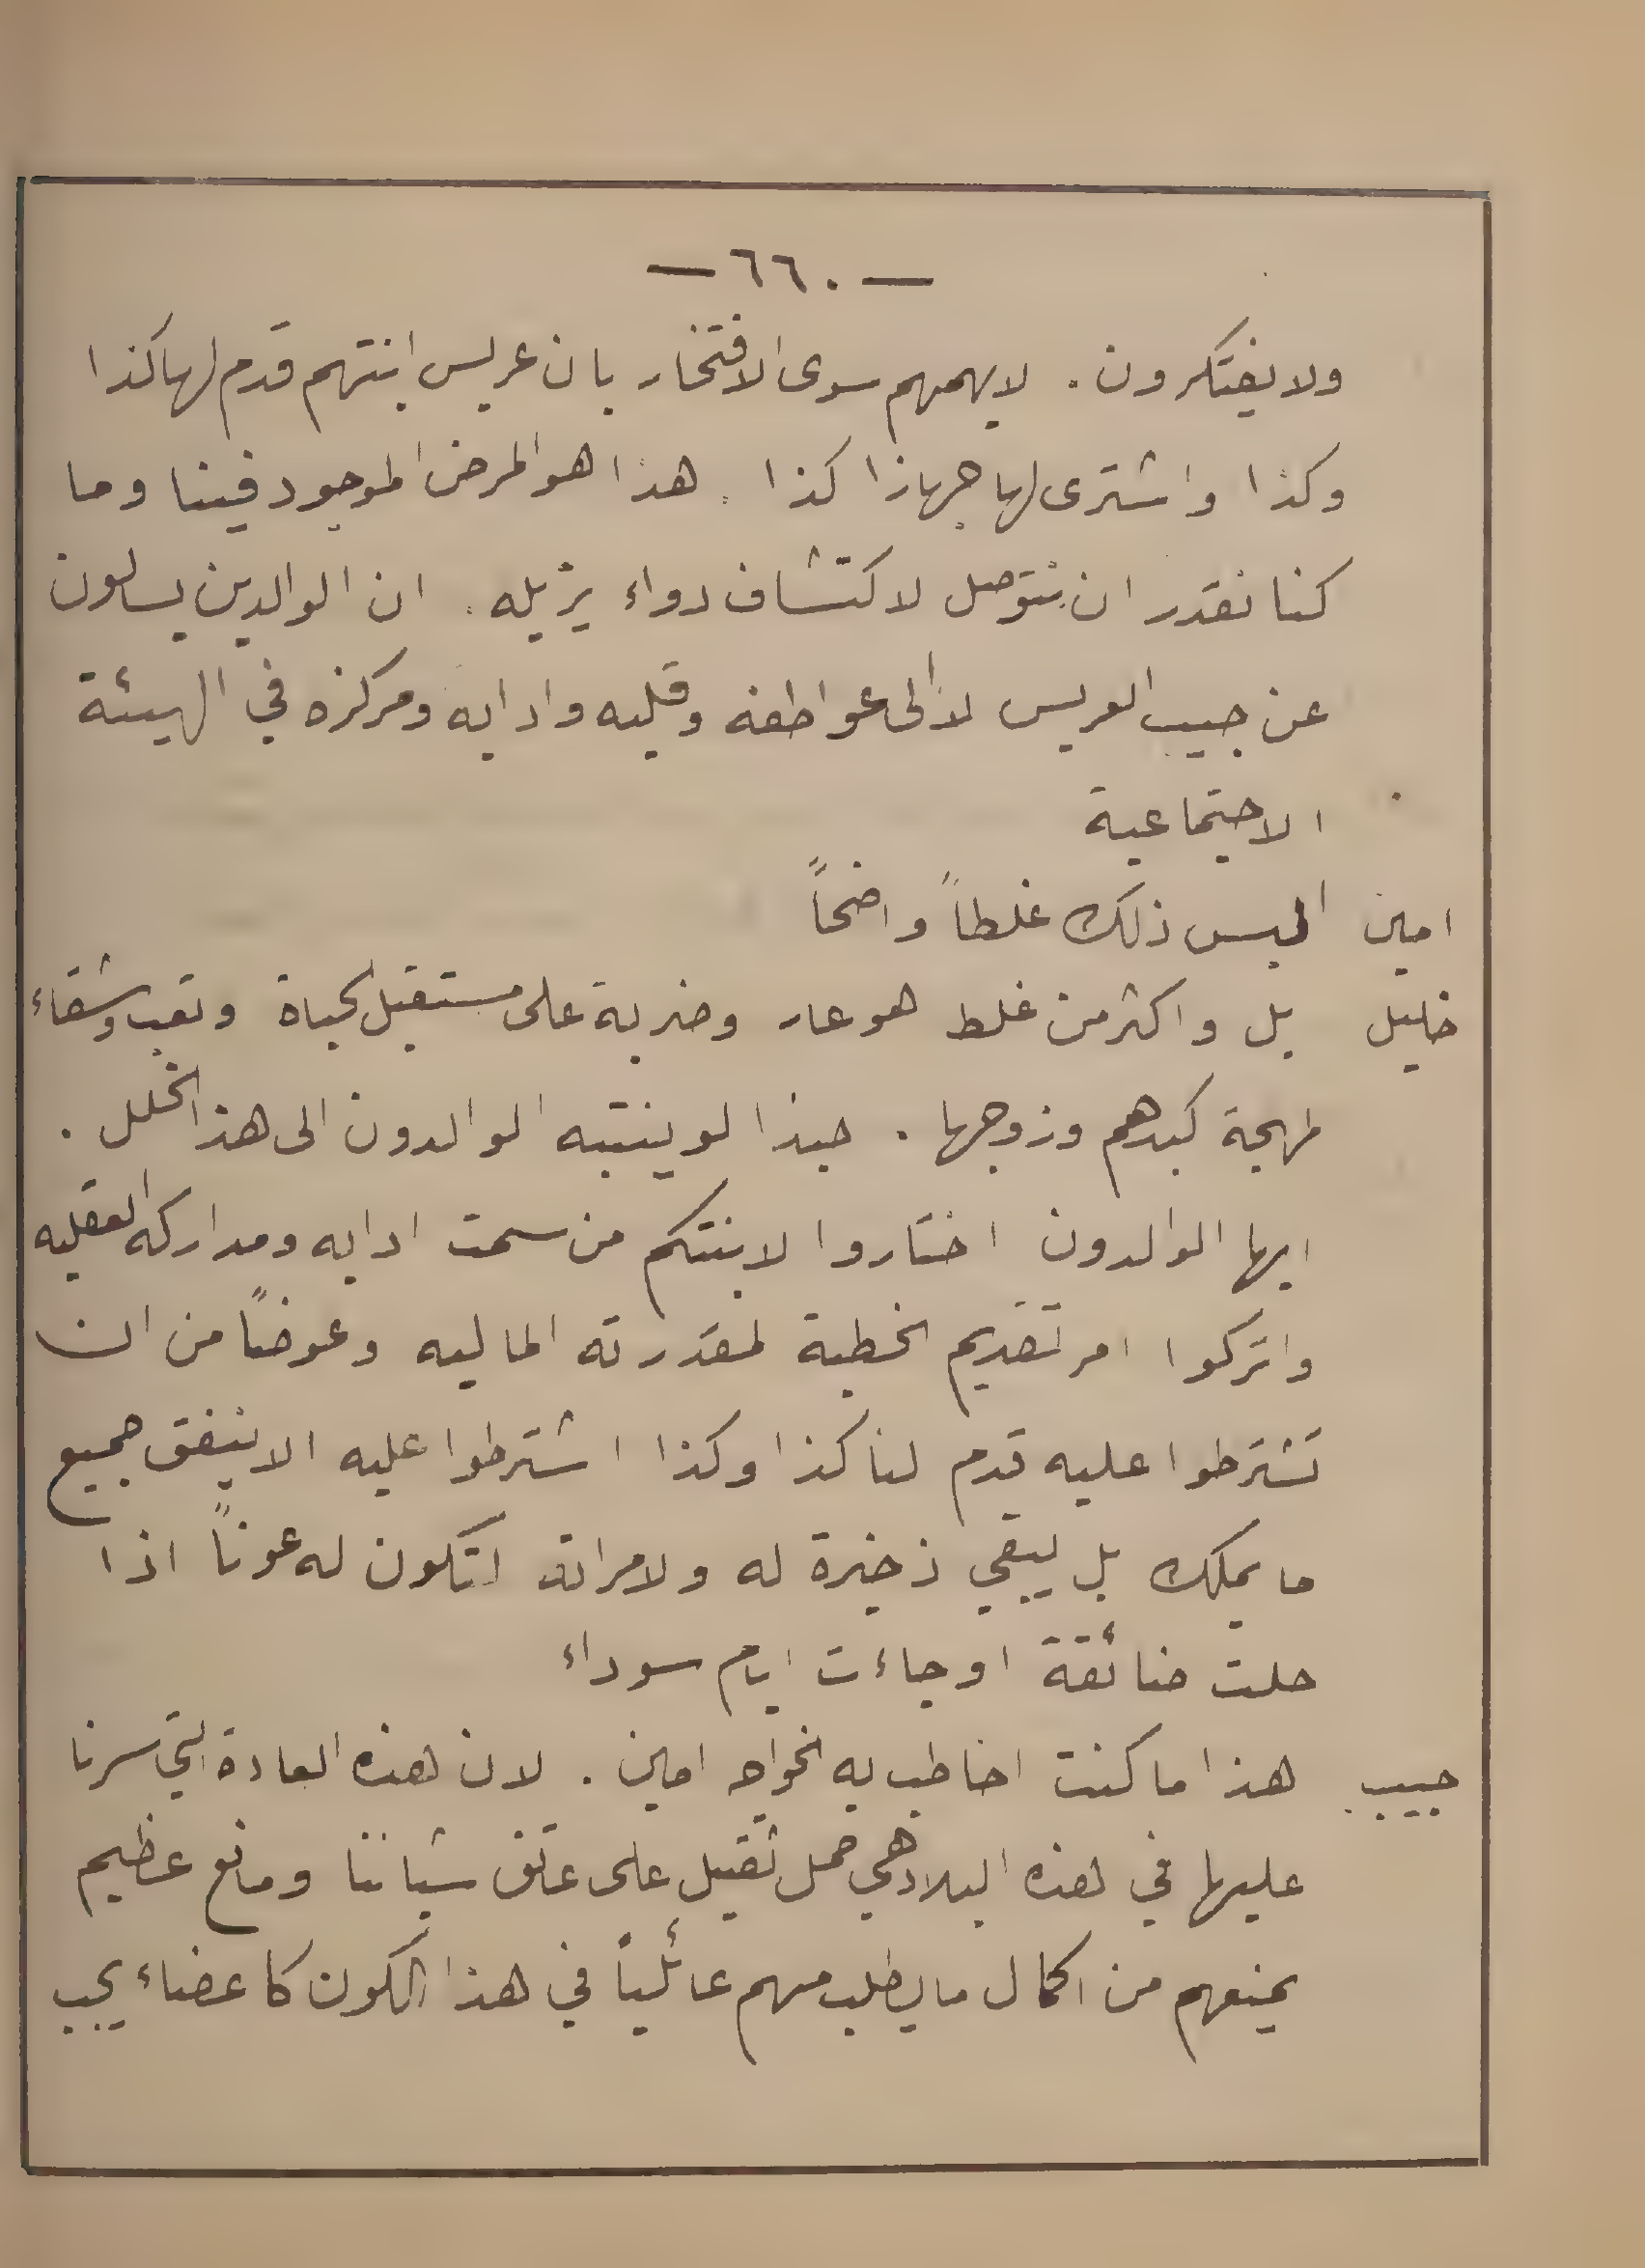 — ٦٦٠ —
ولا يفتكرون . لا يهمهم سوى الافتخار بان عريس ابنتهم قدم لها كذا
وكذا واشترى لها جهازا كذا . هذا هو المرض الموجود فينا وما
كنا نقدر ان نتوصل لاكتشاف دواء يزيله . ان الوالدين يسالون
عن جيب العريس لا الى عواطفه وقلبه وادابه ومركزه في الهيئة
الاجتماعية
امين اليس ذلك غلطاً واضحاً
خليل بل واكثر من غلط هو عار وضربة على مستقبل الحياة وتعب وشقاء
لمهجة كبدهم وزوجها . حبذا لو ينتبه الوالدون الى هذا الخلل .
ايها الوالدون اختاروا لابنتكم من سمت ادابه ومداركه العقليه
واتركوا امر تقديم الخطبة لمقدرته الماليه وعوضاً من ان
تشترطوا عليه قدم لنا كذا وكذا اشترطوا عليه الا ينفق جميع
ما يملك بل يبقي ذخيرة له ولامراته لتكون له عوناً اذا
حلت ضائقة او جاءت ايام سوداء
حبيب هذا ما كنت اخاطب به الخواجه امين . لان هذه العادة التي سرنا
عليها في هذه البلاد هي حمل ثقيل على عتق شباننا ومانع عظيم
يمنعهم من اكمال ما يطلب منهم عائلياً في هذا الكون كاعضاء يجب